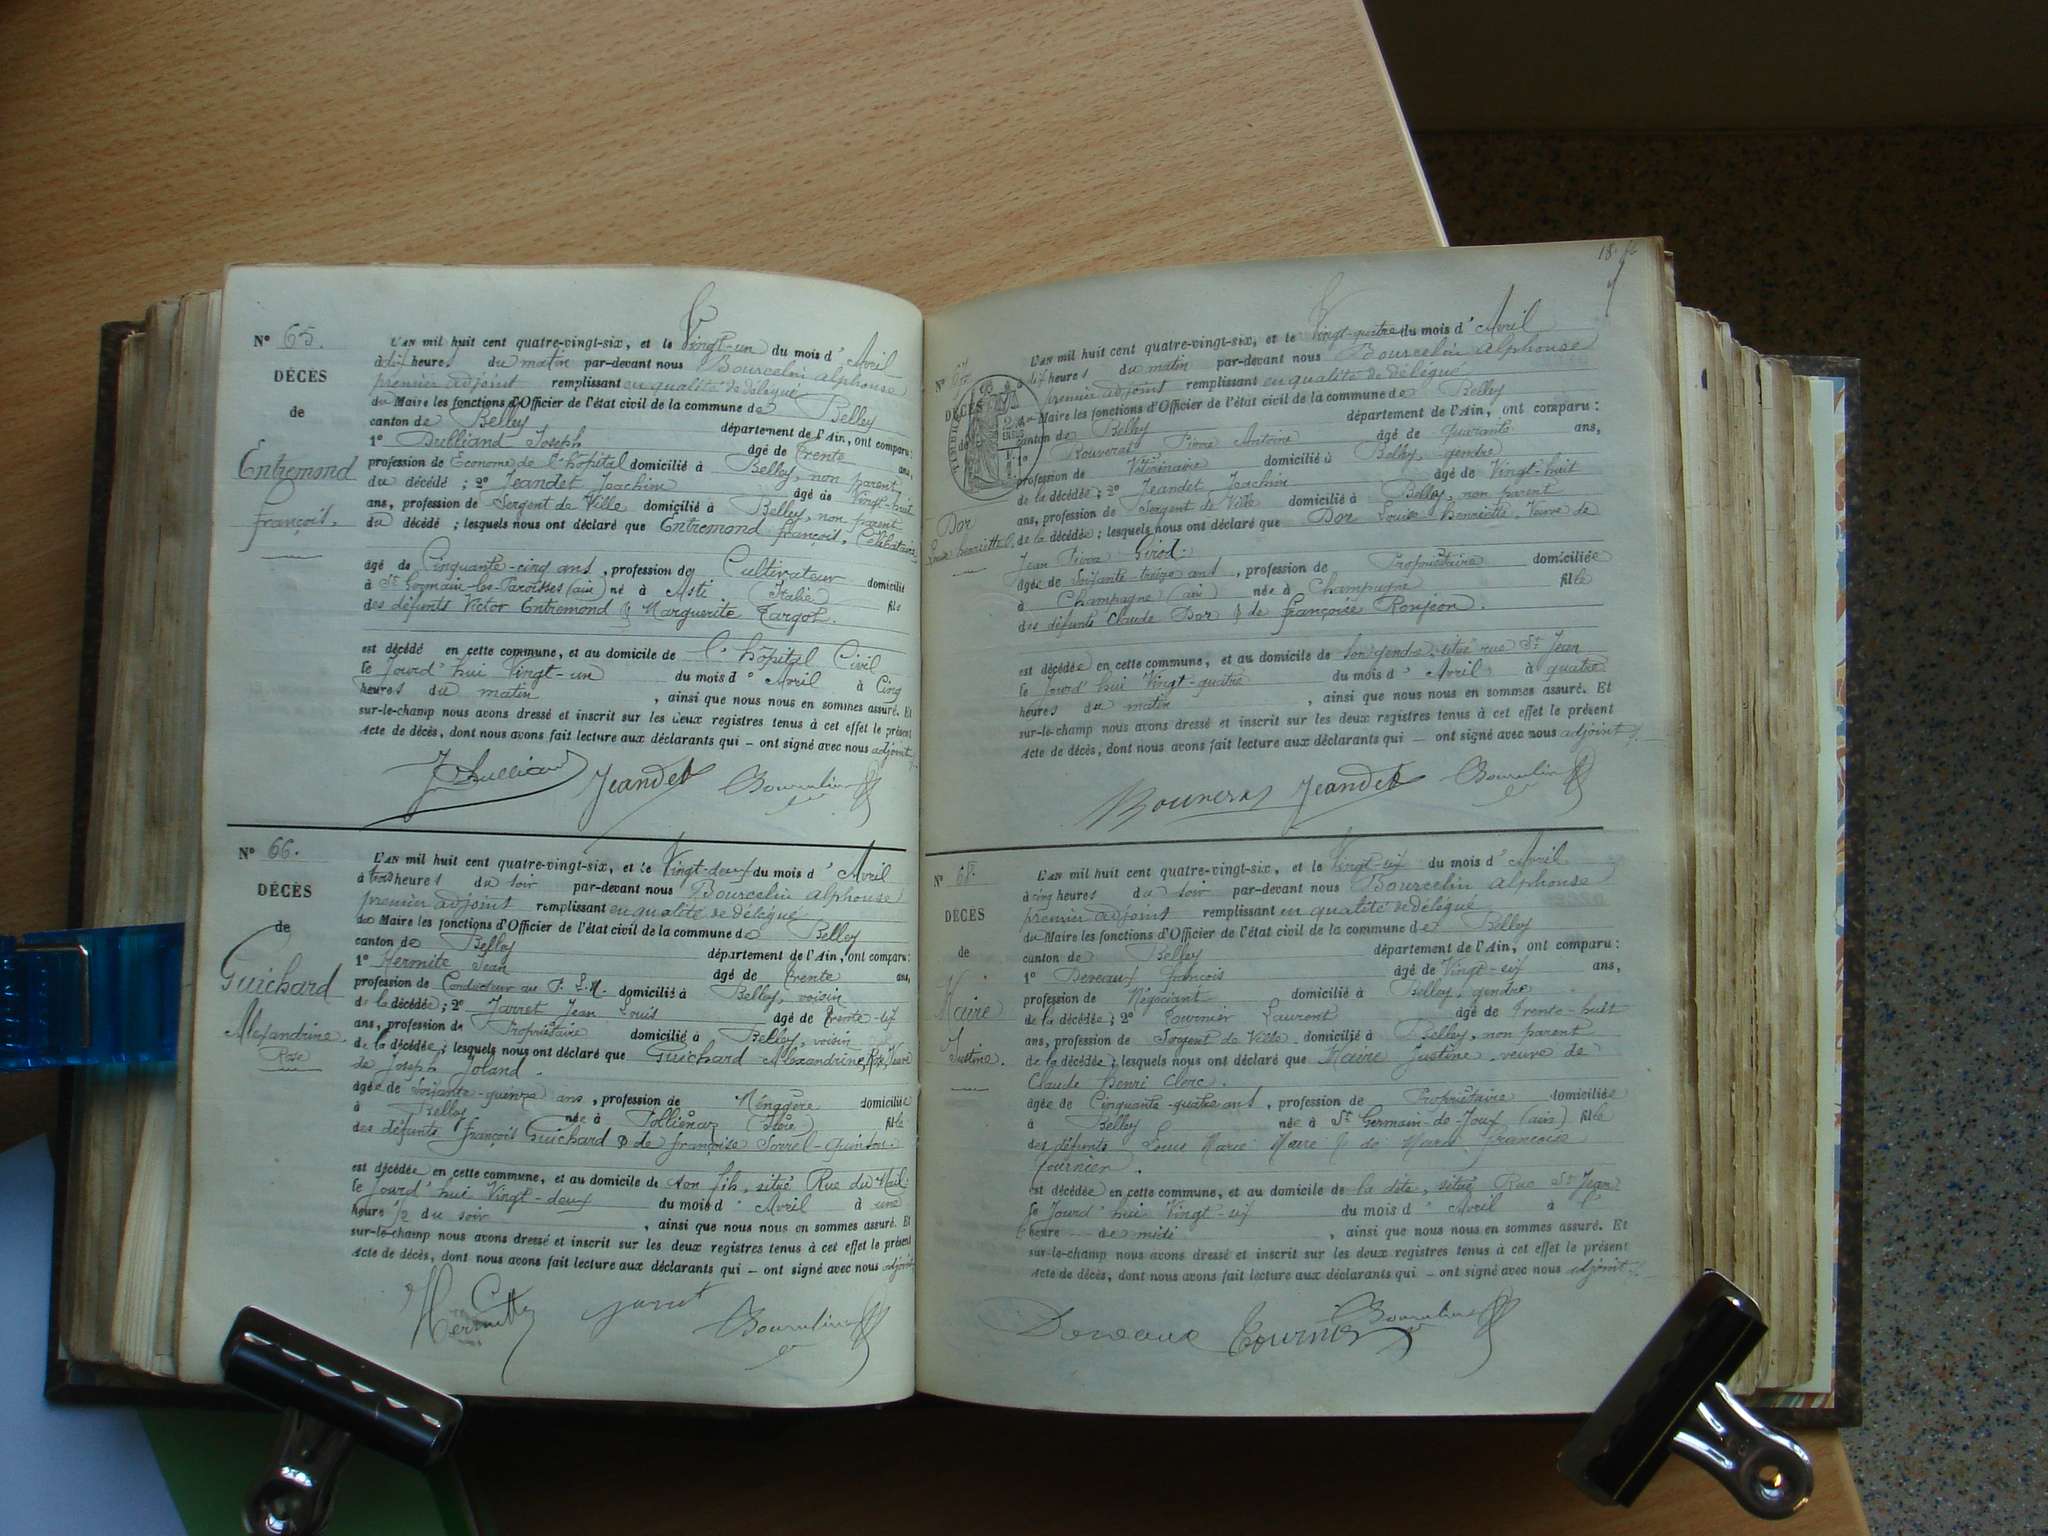 N° 65.
DÉCÈS
de
Entremond
françois.
L'AN mil huit cent quatre-vingt-six, et le Vingt-un du mois d'Avril
à dix heures du matin par-devant nous Bourcelin alphonse
premier adjoint remplissant en qualité de délégué
du Maire les fonctions d'Officier de l'état civil de la commune de Belley
canton de Belley département de l'Ain, ont comparu :
1° Dulliand Joseph âgé de trente ans,
profession de Econome de l'hôpital domicilié à Belley, non parent
du décédé ; 2° Jeandet Joachim âgé de Vingt-huit
ans, profession de Sergent de Ville domicilié à Belley, non parent
du décédé ; lesquels nous ont déclaré que Entremond françois, Célibataire
âgé de Cinquante-cinq ans, profession de Cultivateur domicilié
à St Germain-les-Paroisses (ain) né à Asti (Italie) fils
des défunts Victor Entremond & Marguerite Targot.
est décédé en cette commune, et au domicile de l'hôpital Civil
le Jourd'hui Vingt-un du mois d'Avril à Cinq
heures du matin, ainsi que nous nous en sommes assuré. Et
sur-le-champ nous avons dressé et inscrit sur les deux registres tenus à cet effet le présent
Acte de décès, dont nous avons fait lecture aux déclarants qui — ont signé avec nous adjoint
Jeandet Bourcelin
N° 66.
DÉCÈS
de
Guichard
Alexandrine
Rose
L'AN mil huit cent quatre-vingt-six, et le Vingt-deux du mois d'Avril
à trois heures du soir par-devant nous Bourcelin alphonse
premier adjoint remplissant en qualité de délégué
du Maire les fonctions d'Officier de l'état civil de la commune de Belley
canton de Belley département de l'Ain, ont comparu :
1° Hermite Jean âgé de trente ans,
profession de Conducteur au P. L. M. domicilié à Belley, voisin
de la décédée ; 2° Jarret Jean Louis âgé de trente-six
ans, profession de Propriétaire domicilié à Belley, voisin
de la décédée ; lesquels nous ont déclaré que Guichard Alexandrine, Rose, Veuve
de Joseph Joland.
âgée de Soixante-quinze ans, profession de Ménagère domiciliée
à Belley née à Pollienaz (Isère) fille
des défunts françois Guichard & de françoise Sorrel-quinson.
est décédée en cette commune, et au domicile de son fils, situé Rue du Mail.
le Jourd'hui Vingt-deux du mois d'Avril à une
heure 1/2 du soir, ainsi que nous nous en sommes assuré. Et
sur-le-champ nous avons dressé et inscrit sur les deux registres tenus à cet effet le présent
Acte de décès, dont nous avons fait lecture aux déclarants qui — ont signé avec nous adjoint
Hermitte Jarret Bourcelin
18
N° 67
DÉCÈS
de
Dor
Louise henriette
L'AN mil huit cent quatre-vingt-six, et le Vingt-quatre du mois d'Avril
à dix heures du matin par-devant nous Bourcelin alphonse
premier adjoint remplissant en qualité de délégué
du Maire les fonctions d'Officier de l'état civil de la commune de Belley
canton de Belley département de l'Ain, ont comparu :
1° Rouverat Pierre Antoine âgé de quarante ans,
profession de Vétérinaire domicilié à Belley, gendre
de la décédée ; 2° Jeandet Joachim âgé de Vingt-huit
ans, profession de Sergent de Ville domicilié à Belley, non parent
de la décédée ; lesquels nous ont déclaré que Dor Louise henriette, Veuve de
Jean Pierre Girod.
âgée de Soixante-treize ans, profession de Propriétaire domiciliée
à Champagne (ain) née à Champagne fille
des défunts Claude Dor & de françoise Roujeon.
est décédée en cette commune, et au domicile de son gendre, situé rue St Jean
le Jourd'hui Vingt-quatre du mois d'Avril à quatre
heures du matin, ainsi que nous nous en sommes assuré. Et
sur-le-champ nous avons dressé et inscrit sur les deux registres tenus à cet effet le présent
Acte de décès, dont nous avons fait lecture aux déclarants qui — ont signé avec nous adjoint
Rouverat Jeandet Bourcelin
N° 68
DÉCÈS
de
Maire
Justine.
L'AN mil huit cent quatre-vingt-six, et le Vingt-six du mois d'Avril
à cinq heures du soir par-devant nous Bourcelin alphonse
premier adjoint remplissant en qualité de délégué
du Maire les fonctions d'Officier de l'état civil de la commune de Belley
canton de Belley département de l'Ain, ont comparu :
1° Deveaux françois âgé de Vingt-six ans,
profession de Négociant domicilié à Belley, gendre
de la décédée ; 2° Tournier Laurent âgé de trente-huit
ans, profession de Sergent de Ville domicilié à Belley, non parent
de la décédée ; lesquels nous ont déclaré que Maire Justine, veuve de
Claude henri Clerc.
âgée de Cinquante-quatre ans, profession de Propriétaire domiciliée
à Belley née à St Germain-de-Joux (ain) fille
des défunts Louis Marie Maire & de Marie françoise
fournier.
est décédée en cette commune, et au domicile de la dite, situé Rue St Jean
le Jourd'hui Vingt-six du mois d'Avril à l'
heure de midi, ainsi que nous nous en sommes assuré. Et
sur-le-champ nous avons dressé et inscrit sur les deux registres tenus à cet effet le présent
Acte de décès, dont nous avons fait lecture aux déclarants qui — ont signé avec nous adjoint
Deveaux Tournier Bourcelin